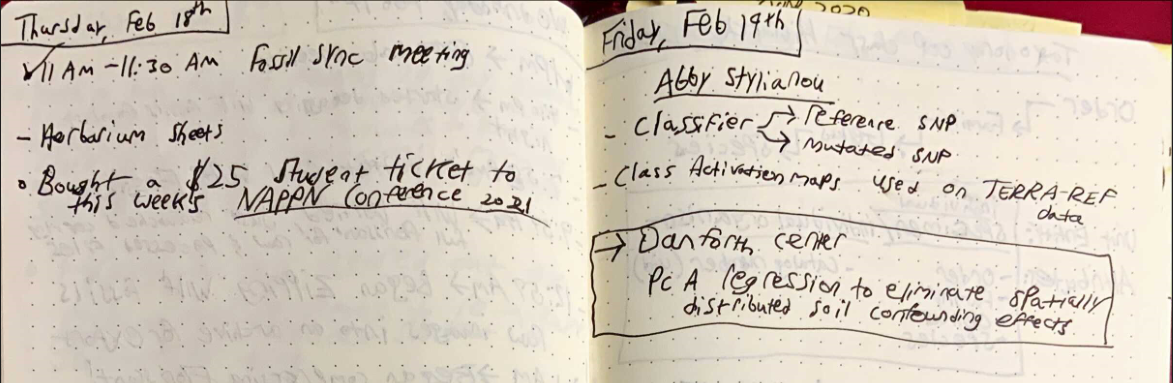 Thursday, Feb 18th
✓ 11 AM - 11:30 AM Fossil Sync meeting
- Herbarium sheets
• Bought a $25 student ticket to
this weeks NAPPN Conference 2021
2020
Friday, Feb 19th
Abby Stylianou
- Classifier → reference SNP
→ Mutated SNP
- Class Activation maps used on TERRA-REF
data
→ Danforth center
PCA regression to eliminate spatially
distributed soil confounding effects